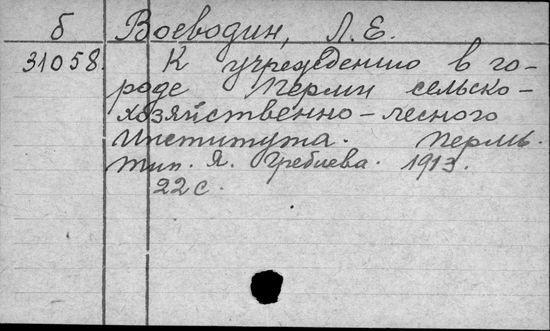 б Воеводин, Л.Е.
31058. К учреждению в го-
роде Перми сельско-
хозяйственно-лесного
института. Пермь.
тип. Я. Гребнева. 1913.
22с.